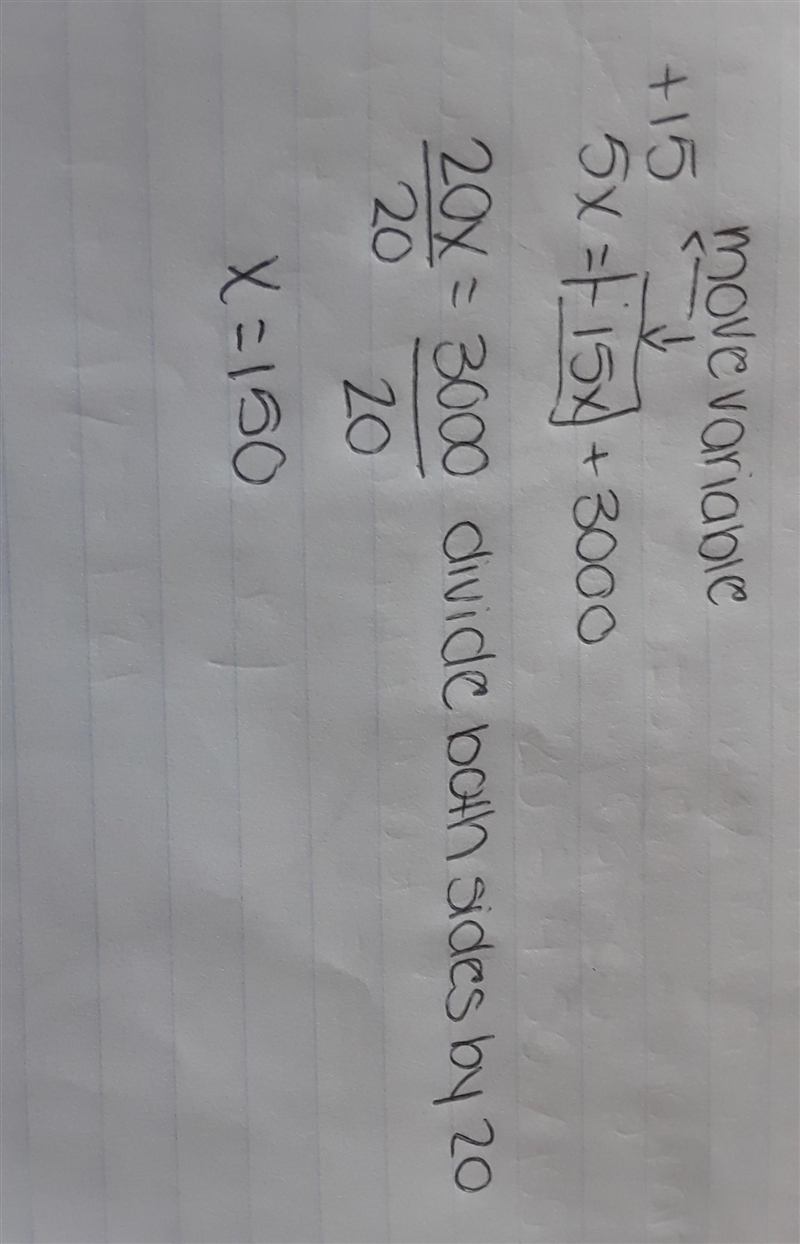 move variable
+15
5x = -15x + 3000
20x = 3000 divide both sides by 20
20 20
x = 150